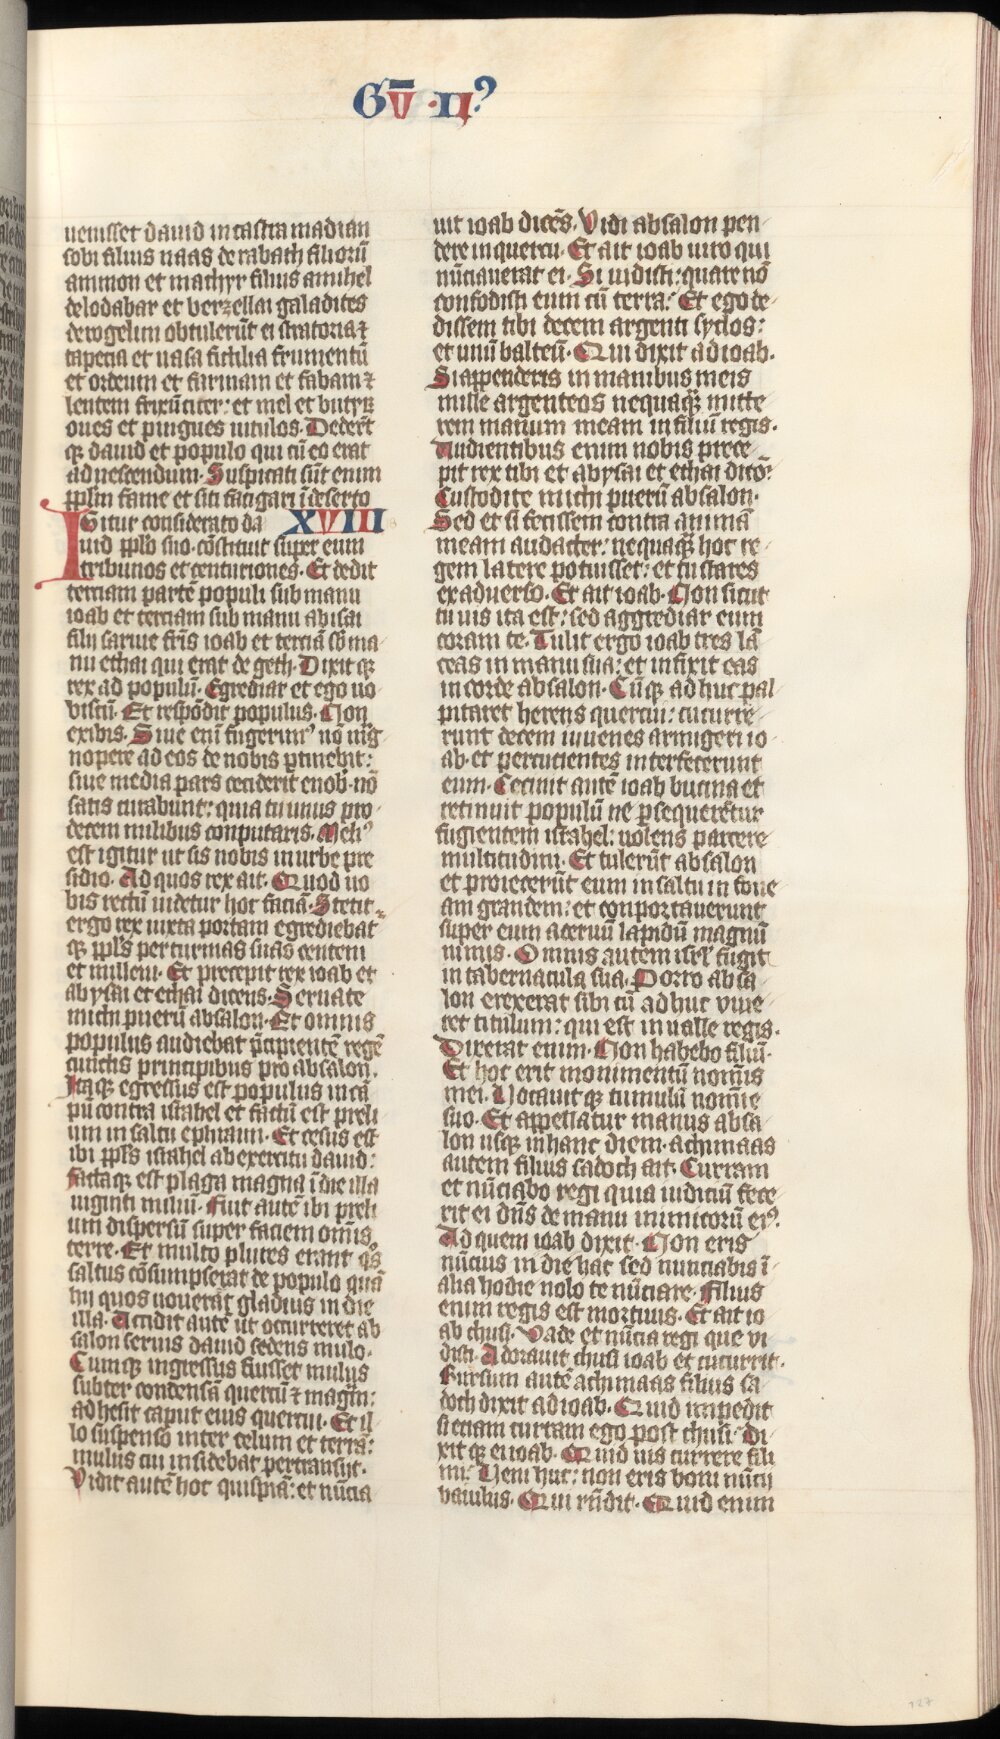 Gū · II?
uenisset dauid in castra madian
sobi filius naas de rabath filiorū
ammon et machyr filius amihel
delodabar et berzellai galadites
derogelim obtulerūt ei stratoria ⁊
tapetia et uasa fictilia frumentū
et ordeum et farinam et fabam ⁊
lentem frixū citer: et mel et butyꝝ
oues et pingues uitulos. Dederūt
qꝫ dauid et populo qui cū eo erat
ad uescendum. Suspicati sūt enim
pplm̄ fame et siti fatigari ī deserto
XVIII
Igitur considerato da
uid pplo suo. cōstituit super eum
tribunos et centuriones. Et dedit
terciam partē populi sub manu
ioab et terciam sub manu abisai
filij saruie fr̄is ioab et terciā sb̄ ma
nu ethai qui erat de geth. Dixit qꝫ
rex ad populū. Egrediar et ego uo
biscū. Et respōdit populus. Non
exibis. Siue enī fugerimꝰ nō mg̅
nopere ad eos de nobis ptinebit:
siue media pars ceciderit enob. nō
satis curabunt: quia tu unus pro
decem milibus conputaris. Meliꝰ
est igitur ut sis nobis in urbe pre
sidio. Ad quos rex ait. Quod uo
bis rectū uidetur hoc faciā. Stetit
ergo rex iuxta portam egrediebat
qꝫ ppls̄ per turmas suas centeni
et milleni. Et precepit rex ioab et
abysai et ethai dicens. Seruate
michi puerū absalon. Et omnis
populus audiebat p̄cipientē regē
cunctis principibus pro absalon.
Itaqꝫ egressus est populus in cā
pū contra israhel et factū est preli
um in saltu ephraim. Et cesus est
ibi ppls̄ israhel ab exercitu dauid:
factaqꝫ est plaga magna ī die illa
uiginti miliū. Fuit autē ibi preli
um dispersū super faciem om̄is
terre. Et multo plures erant qͦs
saltus cōsumpserat de populo quā
hij quos uouerat gladius in die
illa. Accidit autē ut occurreret ab
salon seruis dauid sedens mulo.
Cumqꝫ ingressus fuisset mulus
subter condensā quercū ⁊ magnā:
adhesit caput eius quercui. Et il
lo suspenso inter celum et terrā:
mulus cui insidebat pertransijt.
Vidit autē hoc quispiā: et nūcia
uit ioab dicēs. Vidi absalon pen
dere in quercu. Et ait ioab uiro qui
nūciauerat ei. Si uidisti: quare nō
confodisti eum cū terra: Et ego de
dissem tibi decem argenti syclos:
et unū balteū. Qui dixit ad ioab.
Si appenderis in manibus meis
mille argenteos nequaqꝫ mitte
rem manum meam in filiū regis.
Audientibus enim nobis prece
pit rex tibi et abysai et ethai dicēs:
Custodite michi puerū absalon.
Sed et si fecissem contra animā
meam audacter: nequaqꝫ hoc re
gem latere potuisset: et tu stares
exaduerso. Et ait ioab. Non sicut
tu uis ita est: sed aggrediar eum
coram te. Tulit ergo ioab tres lā
ceas in manu sua: et infixit eas
in corde absalon. Cūqꝫ ad huc pal
pitaret herens quercui: cucurre
runt decem iuuenes armigeri io
ab. et percutientes interfecerunt
eum. Cecinit autē ioab bucina et
retinuit populū ne psequeretur
fugientem israhel: uolens parcere
multitudini. Et tulerūt absalon
et proiecerūt eum in saltu in foue
am grandem: et conportauerunt
super eum aceruū lapidū magnū
nimis. Omnis autem isrl̄ fugit
in tabernacula sua. Porro absa
lon erexerat sibi cū adhuc viue
ret titulum: qui est in ualle regis.
Dixerat enim. Non habebo filiū.
Et hoc erit monimentū nom̄is
mei. Vocauit qꝫ tumulū nom̄ie
suo. Et appellatur manus absa
lon usqꝫ in hanc diem. achimaas
autem filius sadoch ait. Curram
et nūciabo regi quia iudiciū fece
rit ei dn̄s de manu inimicorū eiꝰ.
Ad quem ioab dixit. Non eris
nūcius in die hac sed nunciabis ī
alia hodie nolo te nūciare. Filius
enim regis est mortuus. Et ait io
ab chusi. Vade et nūcia regi que vi
disti. Adorauit chusi ioab et cucurrit.
Rursum autē achimaas filius sa
doch dixit ad ioab. Quid impedit
si etiam curram ego post chusi. Di
xit qꝫ ei ioab. Quid uis currere fili
mi. Veni huc: non eris boni nūcij
baiulus. Qui rn̄dit. Quid enim
127